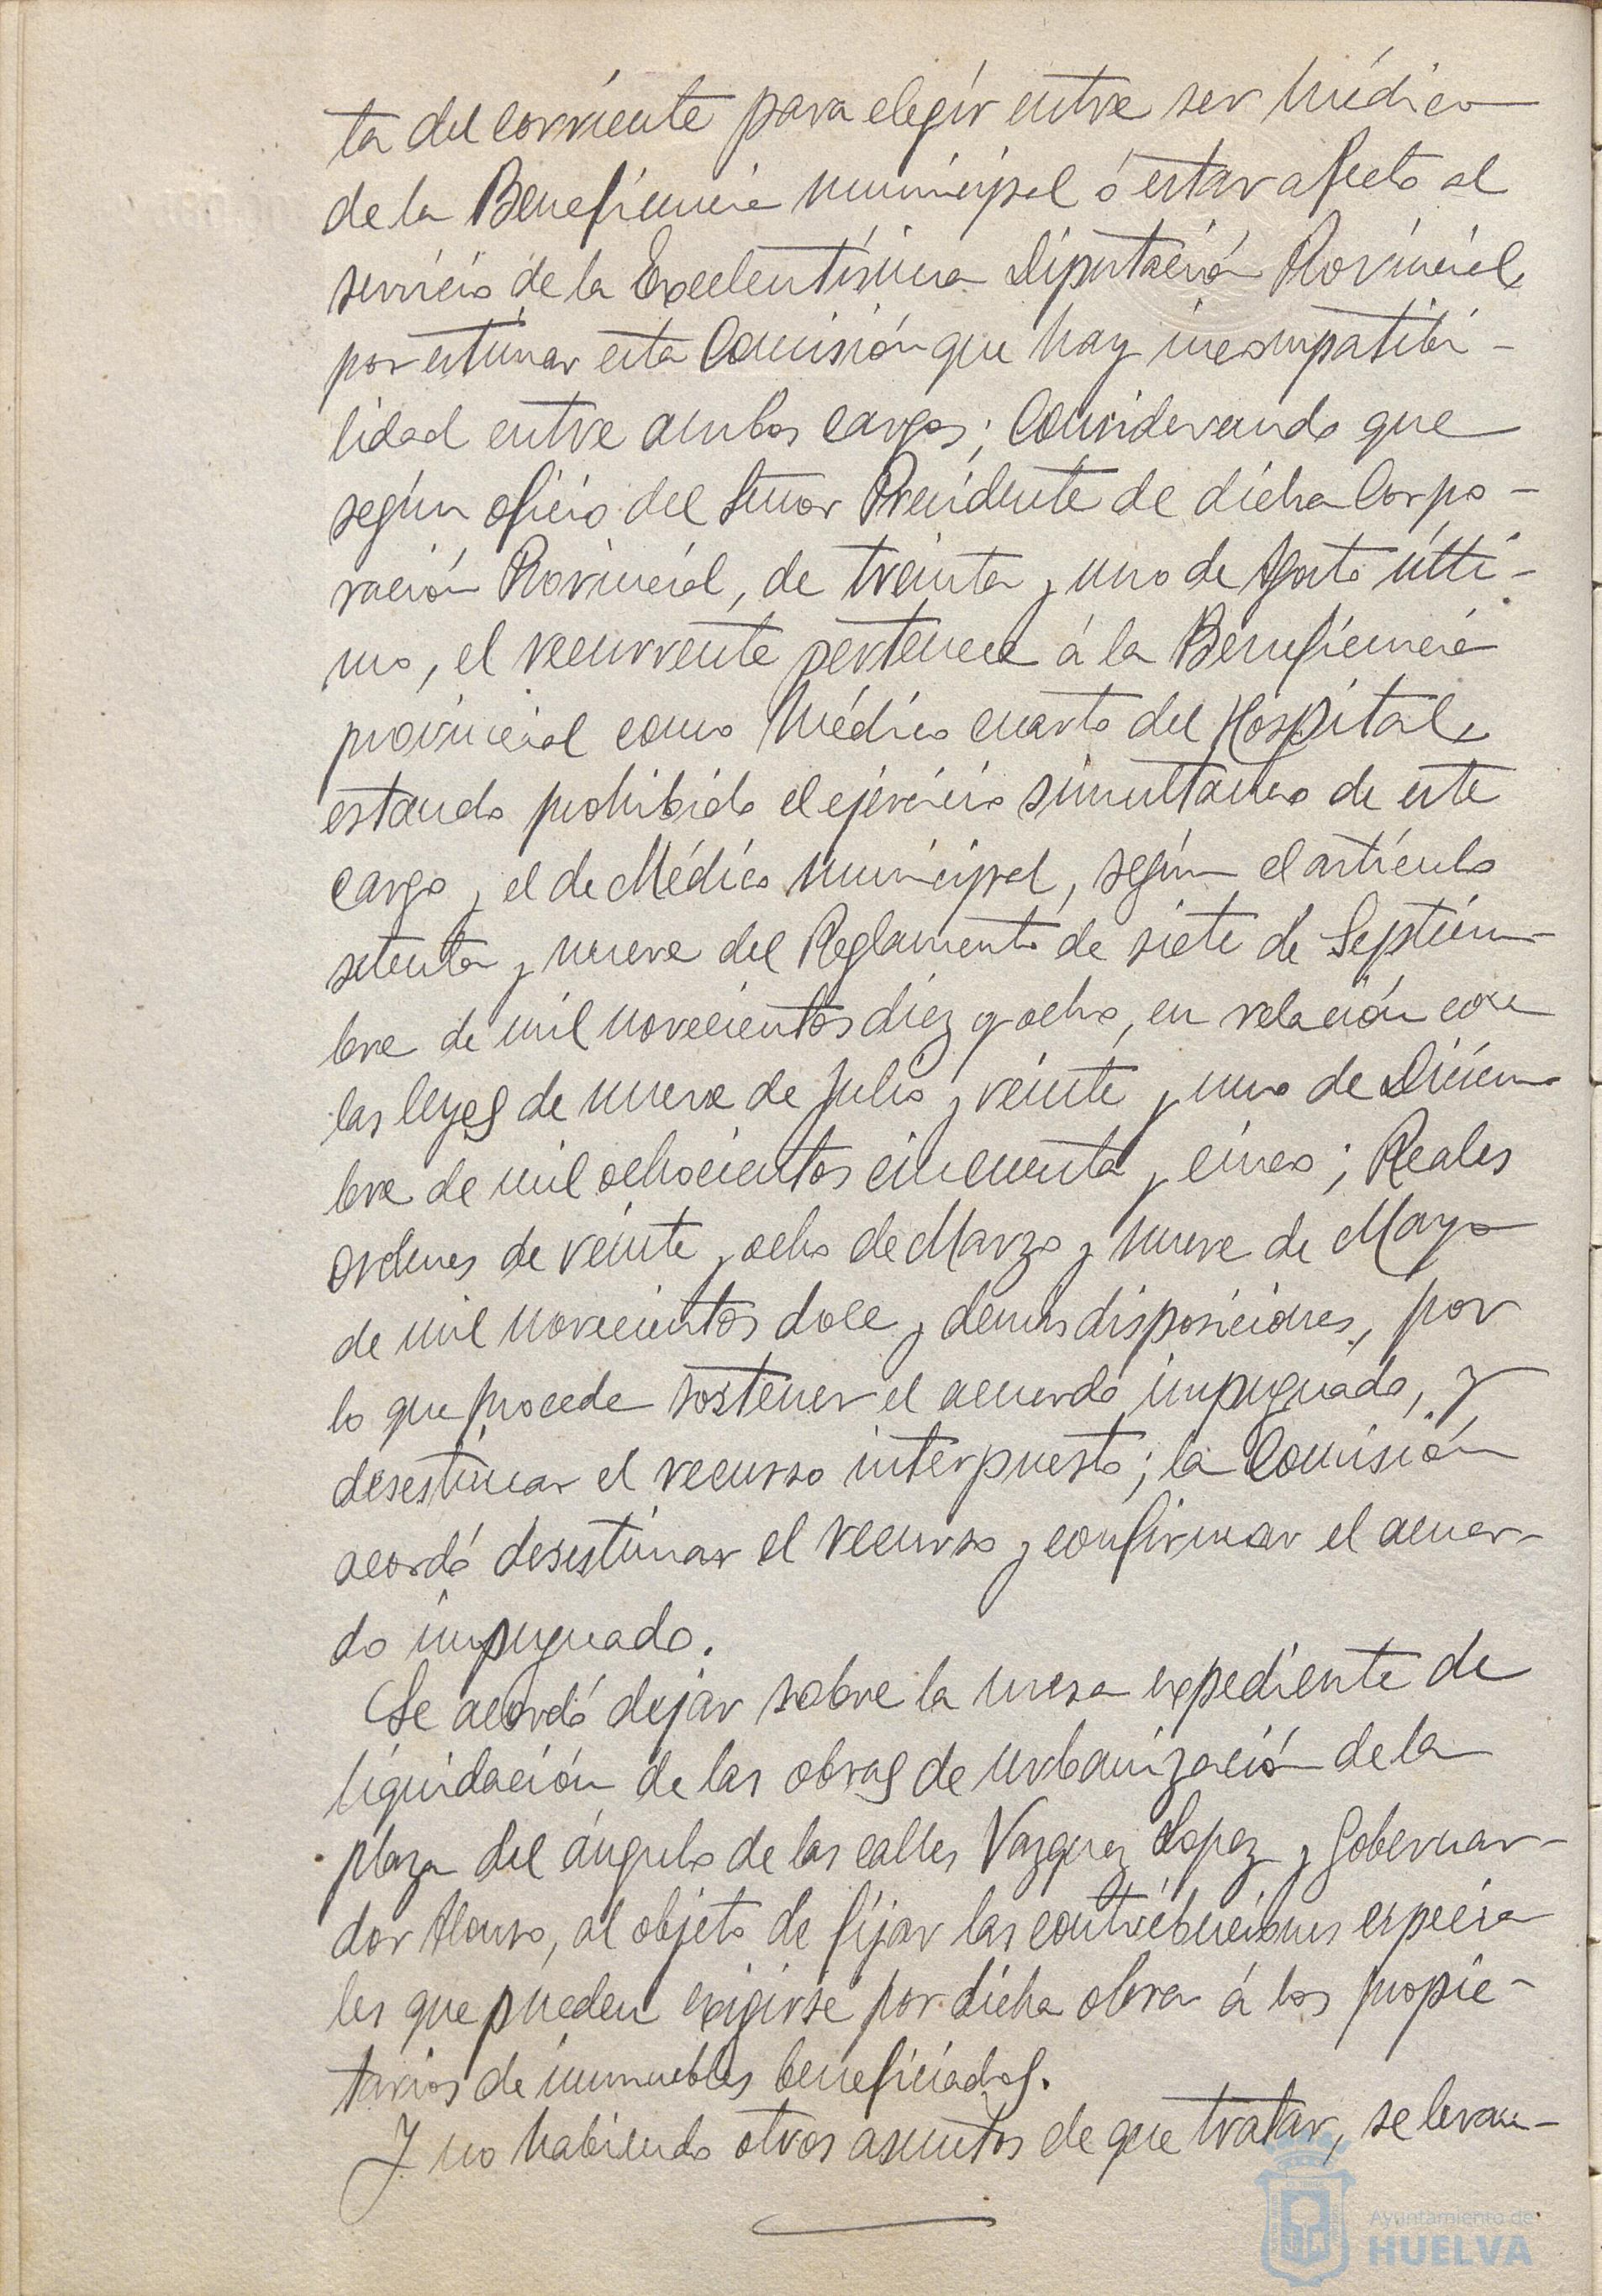 ta del corriente para elegir entre ser Médico
de la Beneficencia municipal ó estar afecto al
servicio de la Excelentísima Diputación Provincial,
por estimar esta Comisión que hay incompatibi-
lidad entre ambos cargos; Considerando que
según oficio del Señor Presidente de dicha Corpo-
ración Provincial, de treinta y uno de Agosto últi-
mo, el recurrente pertenece á la Beneficencia
provincial como Médico cuarto del Hospital,
estando prohibido el ejercicio simultaneo de este
cargo y el de Médico municipal, según el artículo
setenta y nueve del Reglamento de siete de Septiem-
bre de mil novecientos diez y ocho, en relación con
las leyes de nueve de Julio y veinte y uno de Diciem-
bre de mil ochocientos cincuenta y cinco; Reales
ordenes de veinte y ocho de Marzo y nueve de Mayo
de mil novecientos doce y demás disposiciones, por
lo que procede sostener el acuerdo impugnado, y
desestimar el recurso interpuesto; la Comisión
acordó desestimar el recurso y confirmar el acuer-
do impugnado.
Se acordó dejar sobre la mesa expediente de
liquidación de las obras de urbanización de la
plaza del ángulo de las calles Vazquez Lopez y Gobernar-
dor Alonso, al objeto de fijar las contribuciones especia
les que pueden exigirse por dicha obra á los propie-
tarios de inmuebles beneficiados.
Y no habiendo otros asuntos de que tratar, se levan-
Ayuntamiento de
HUELVA